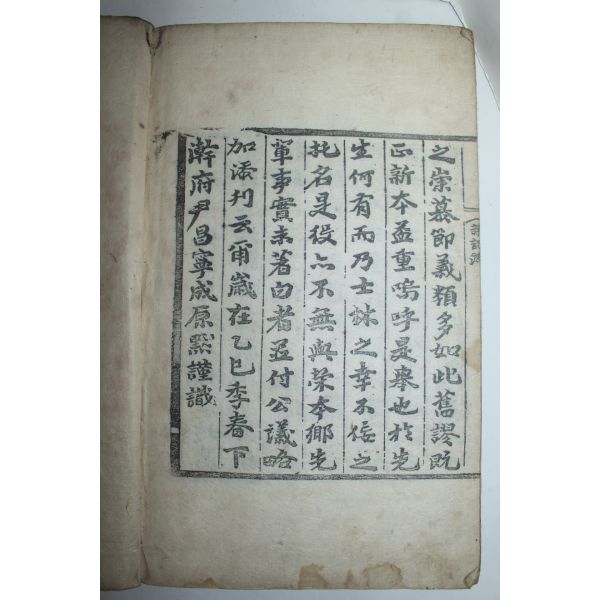 之崇慕節義類多如此舊謬旣
正新本益重嗚呼是擧也於先
生何有而乃士林之幸不佞之
托名是役亦不無與榮本鄕先
輩事實未著白者並付公議略
加添刋云爾歲在乙巳季春下
澣府尹昌寧成原黙謹識